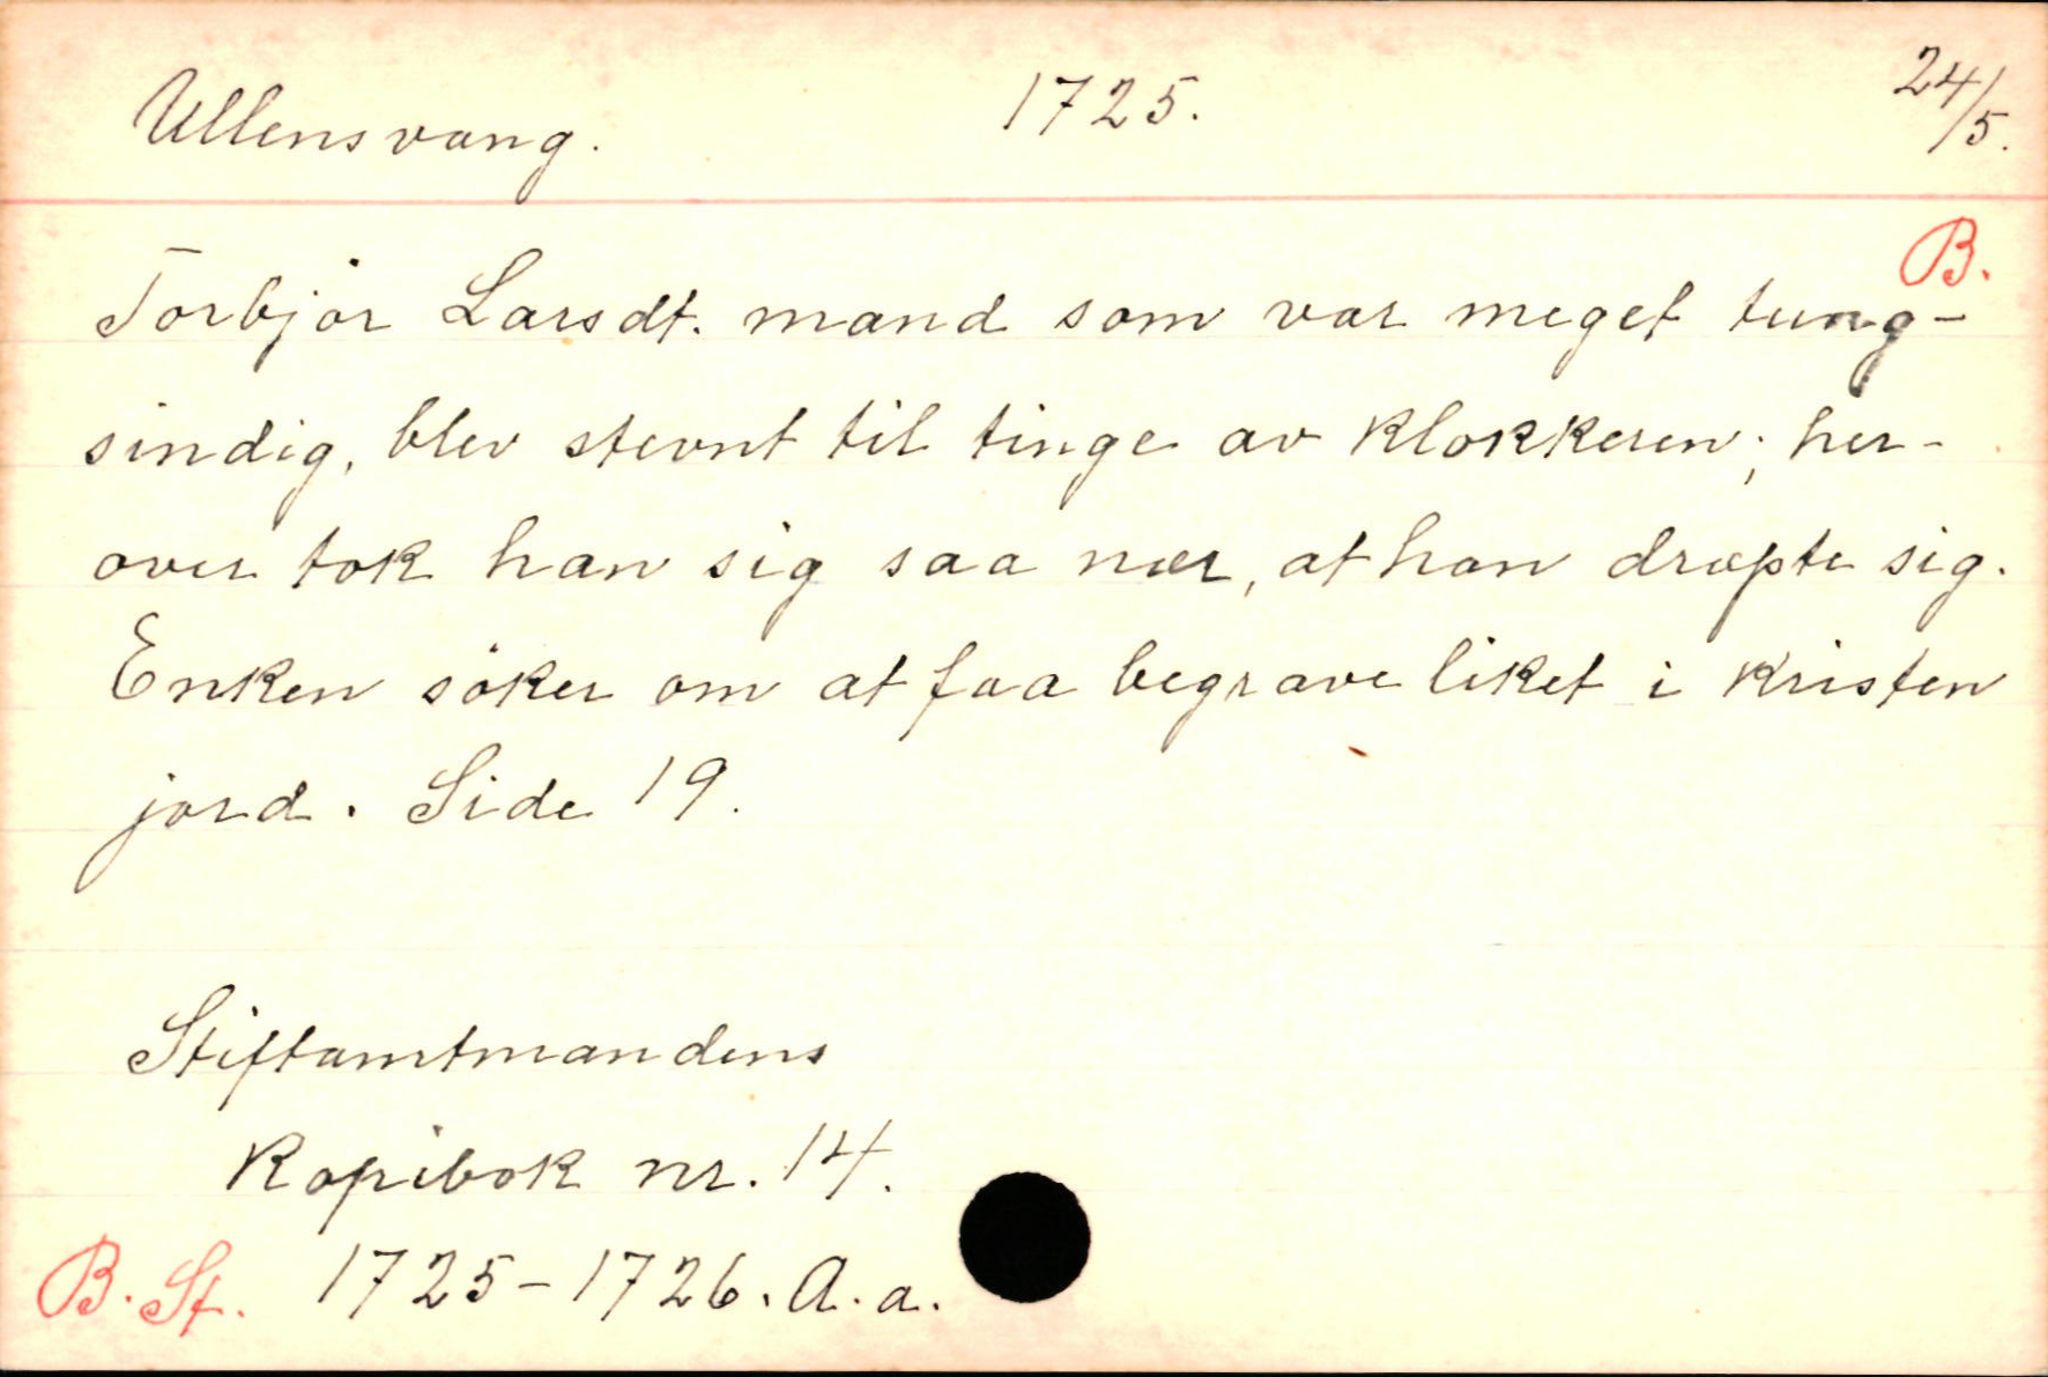 Ullensvang. 1725. 24/5.
B.
Torbjör Larsdt. mand som var meget tung-
sindig, blev stevnt til tinge av klokkeren; her-
over tok han sig saa nær, at han dræpte sig.
Enken söker om at faa begrave liket i kristen
jord. Side 19.
Stiftamtmandens
Kopibok nr. 14.
B. St. 1725-1726. A. a.